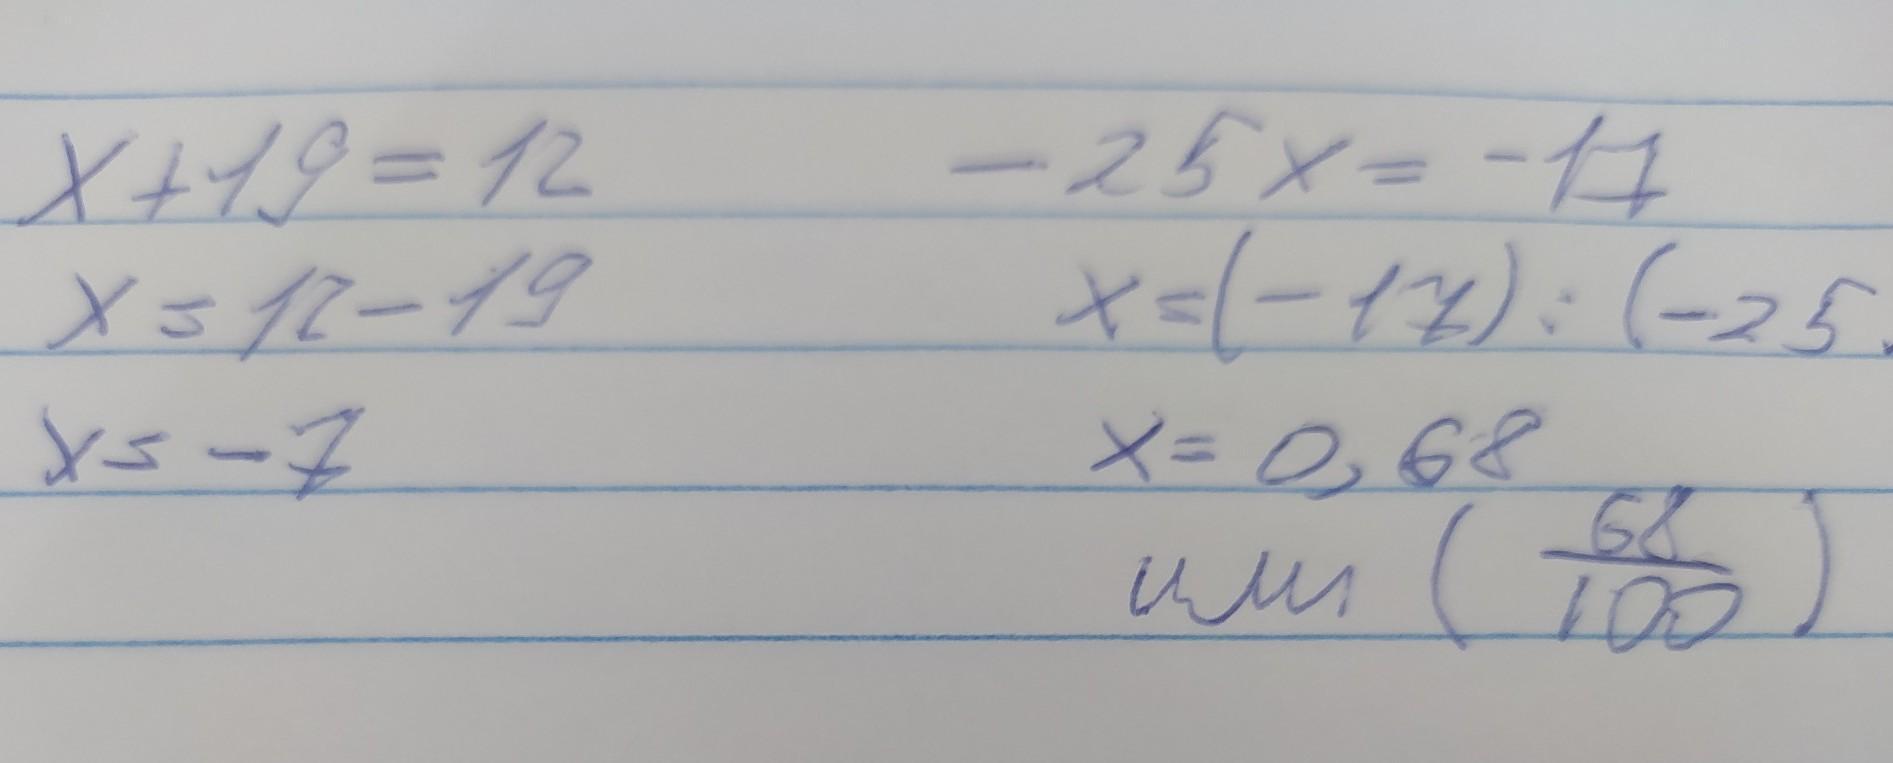 x+19=12
x=12-19
x=-7
-25x=-17
x=(-17):(-25
x=0,68
или (68/100)